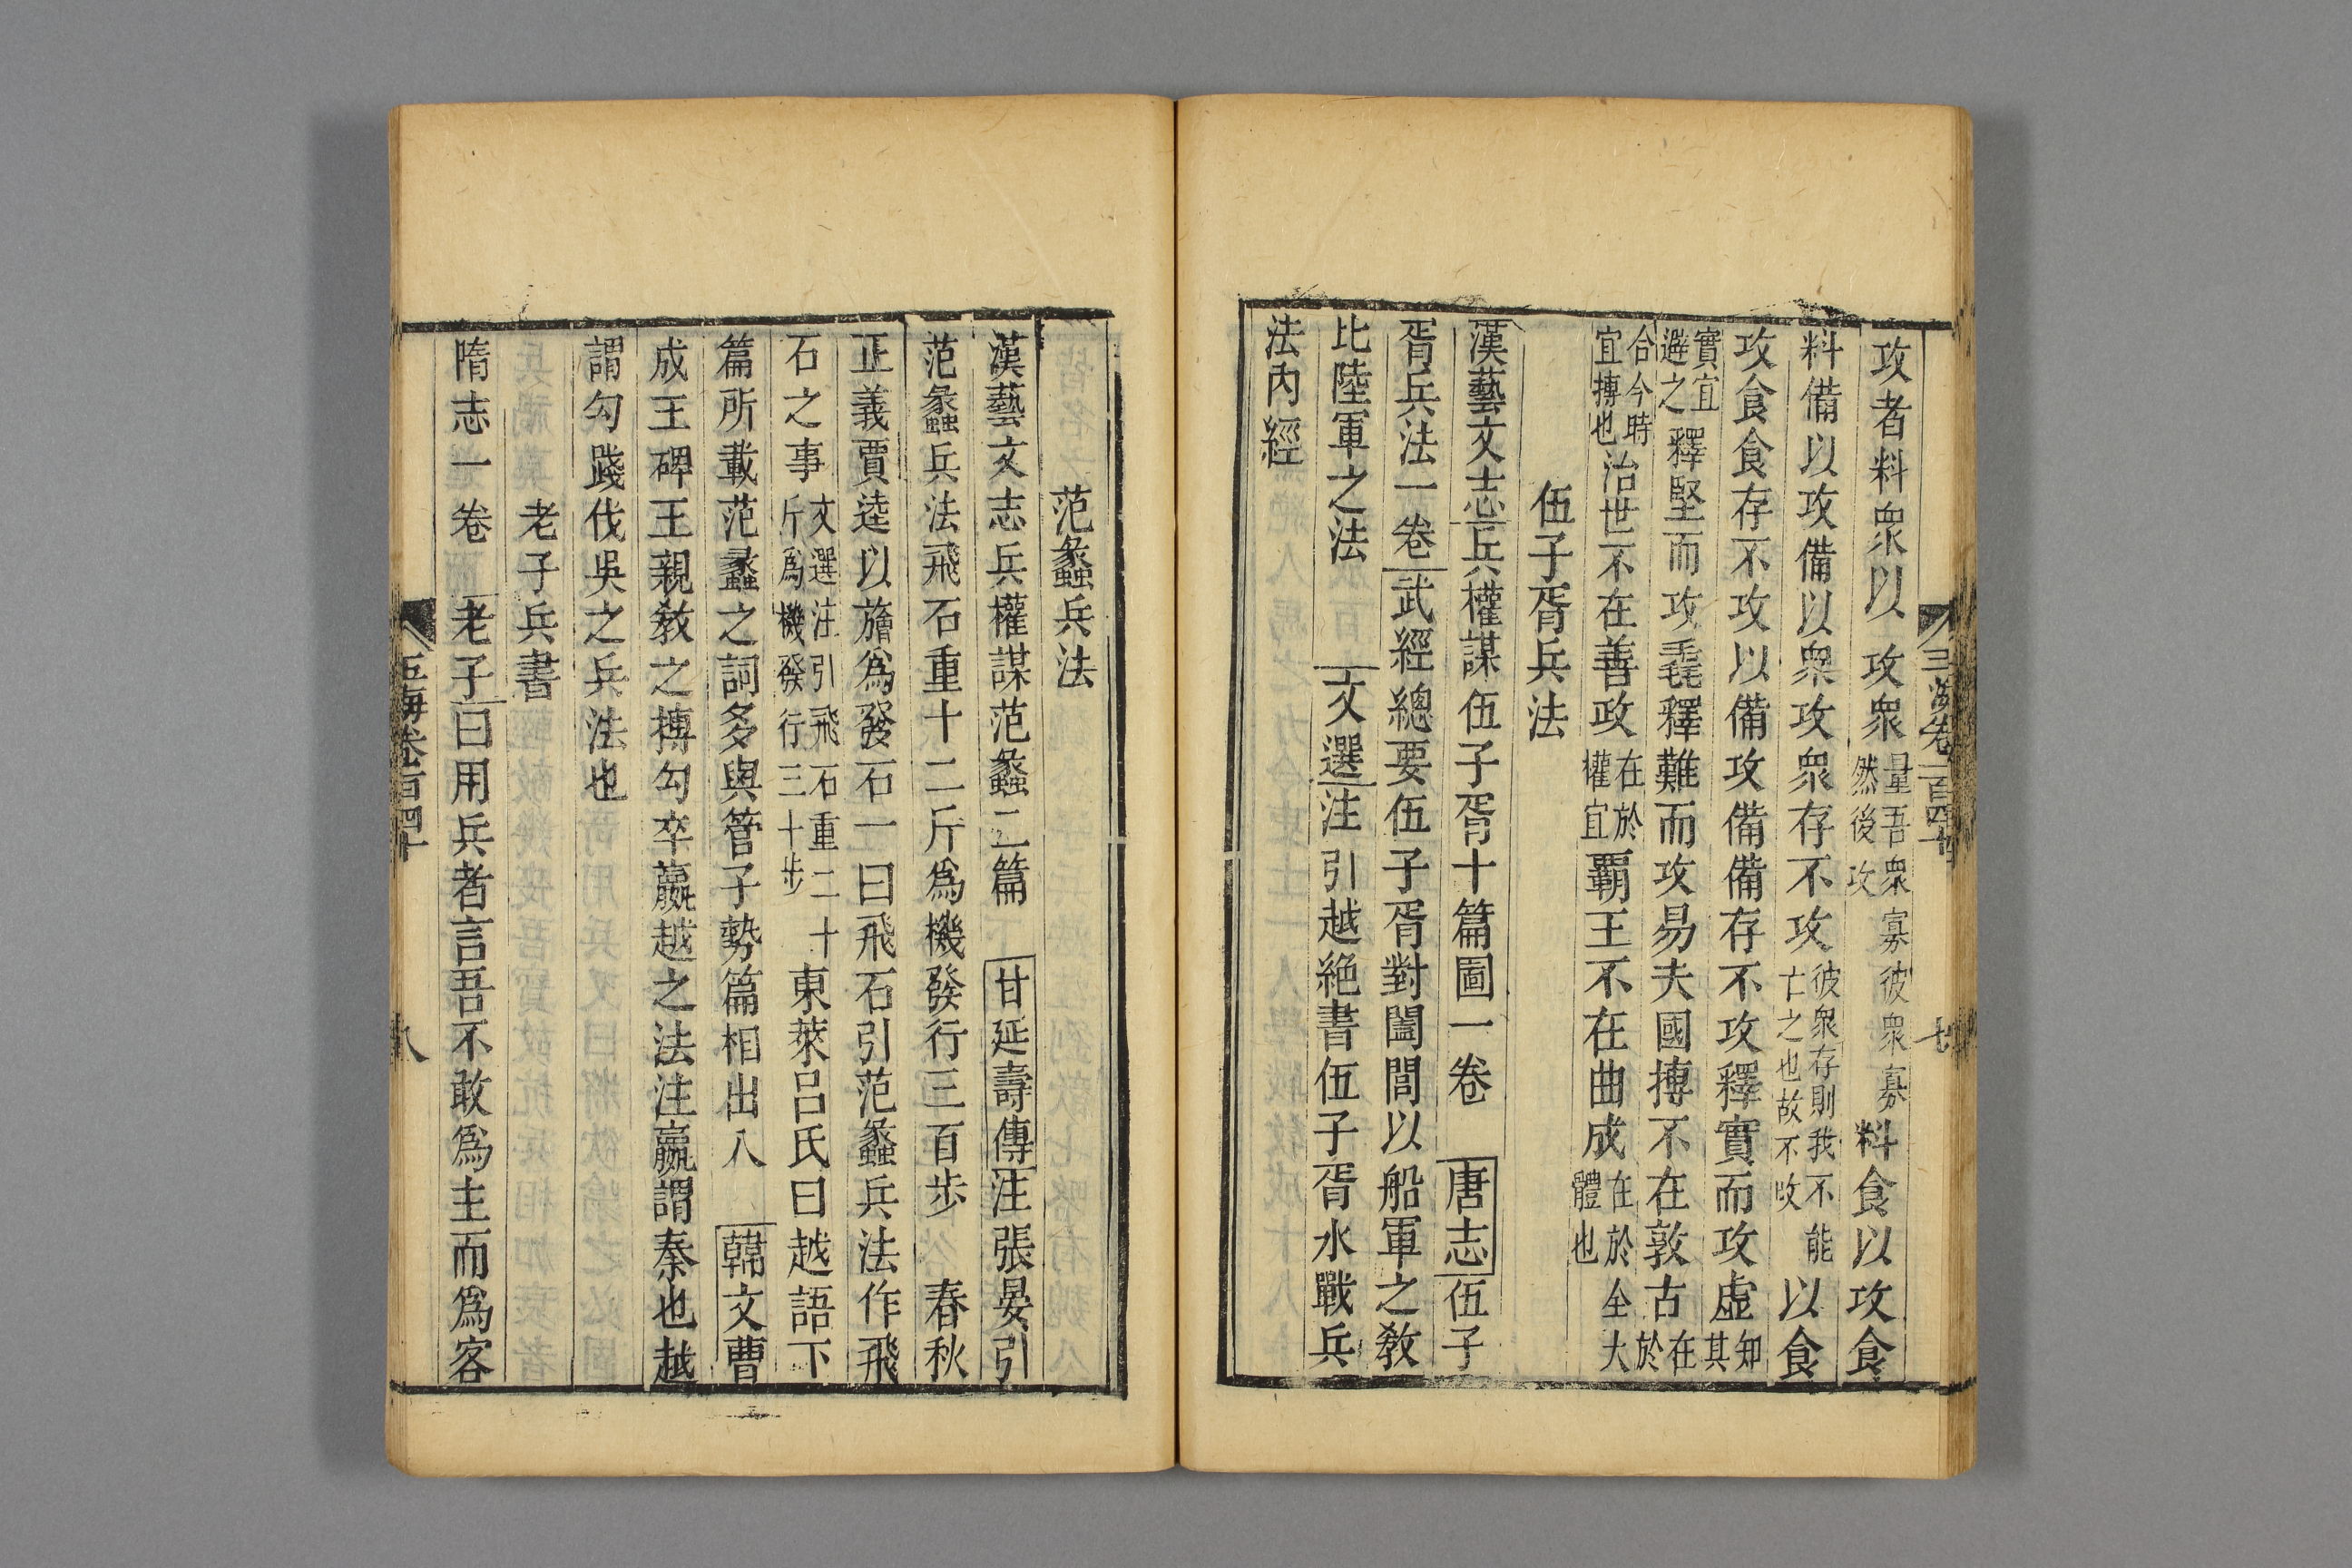 攻者料衆以攻衆量吾衆寡彼衆寡然後攻料食以攻食
料備以攻備以衆攻衆存不攻彼衆存則我不能亡之也故不攻以食
攻食食存不攻以備攻備備存不攻釋實而攻虛知其
實宜避之釋堅而攻毳釋難而攻易夫國摶不在敦古在於
合今時宜摶也治世不在善政在於權宜霸王不在曲成在於全大體也
伍子胥兵法
漢藝文志兵權謀伍子胥十篇圖一卷 唐志伍子
胥兵法一卷武經總要伍子胥對闔閭以船軍之敎
比陸軍之法 文選注引越絶書伍子胥水戰兵
法內經
玉海卷一百四十 七
范蠡兵法
漢藝文志兵權謀范蠡二篇 甘延壽傳注張晏引
范蠡兵法飛石重十二斤爲機發行三百步 春秋
正義賈逵以旝爲發石一曰飛石引范蠡兵法作飛
石之事文選注引飛石重二十斤爲機發行三十步東萊呂氏曰越語下
篇所載范蠡之詞多與管子勢篇相出入 韓文曹
成王碑王親敎之摶勾卒嬴越之法注嬴謂秦也越
謂勾踐伐吳之兵法也
老子兵書
隋志一卷老子曰用兵者言吾不敢爲主而爲客
玉海卷百四十 八